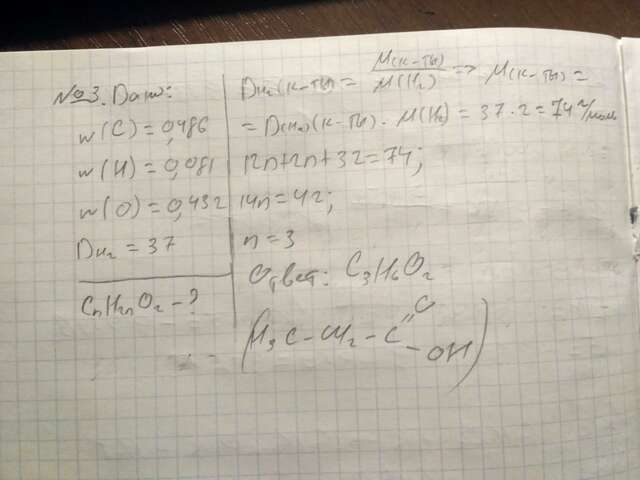 №3. Дано:
w(C) = 0,486
w(H) = 0,081
w(O) = 0,432
Dн₂ = 37
CnH2nO2 - ?
Dн₂(к-ты) = M(к-ты)/M(H₂) => M(к-ты) =
= D(н₂)(к-ты) · M(H₂) = 37 · 2 = 74 г/моль
12n+2n+32 = 74;
14n = 42;
n = 3
Ответ: C₃H₆O₂
(H₃C - CH₂ - C
O
- OH)